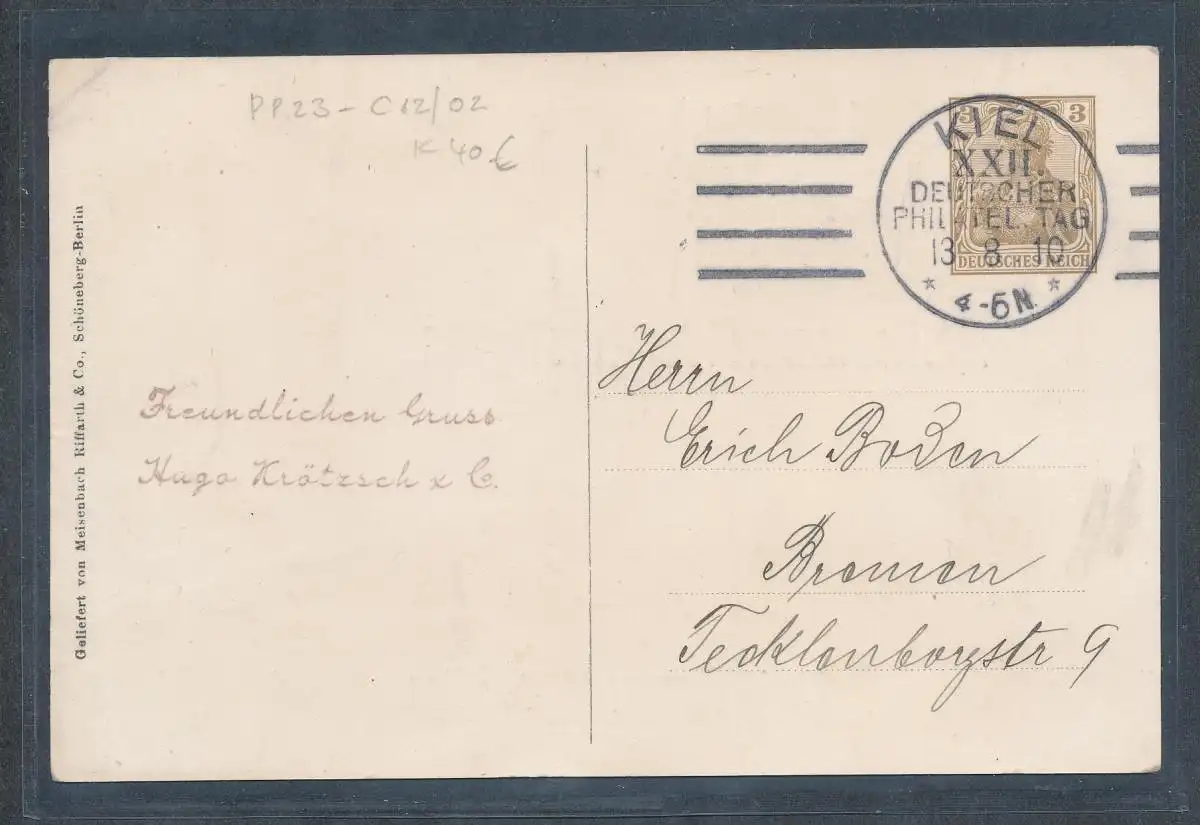 PP23 - C12/02
K 40 €
3 3
KIEL
XXII.
DEUTSCHER
PHILATEL. TAG
13 8 10
* 4-5N. *
DEUTSCHES REICH
Geliefert von Meisenbach Riffarth & Co., Schöneberg-Berlin
Freundlichen Gruss
Hugo Krötzsch & C.
Herrn
Erich Boden
Bremen
Tecklenborgstr 9